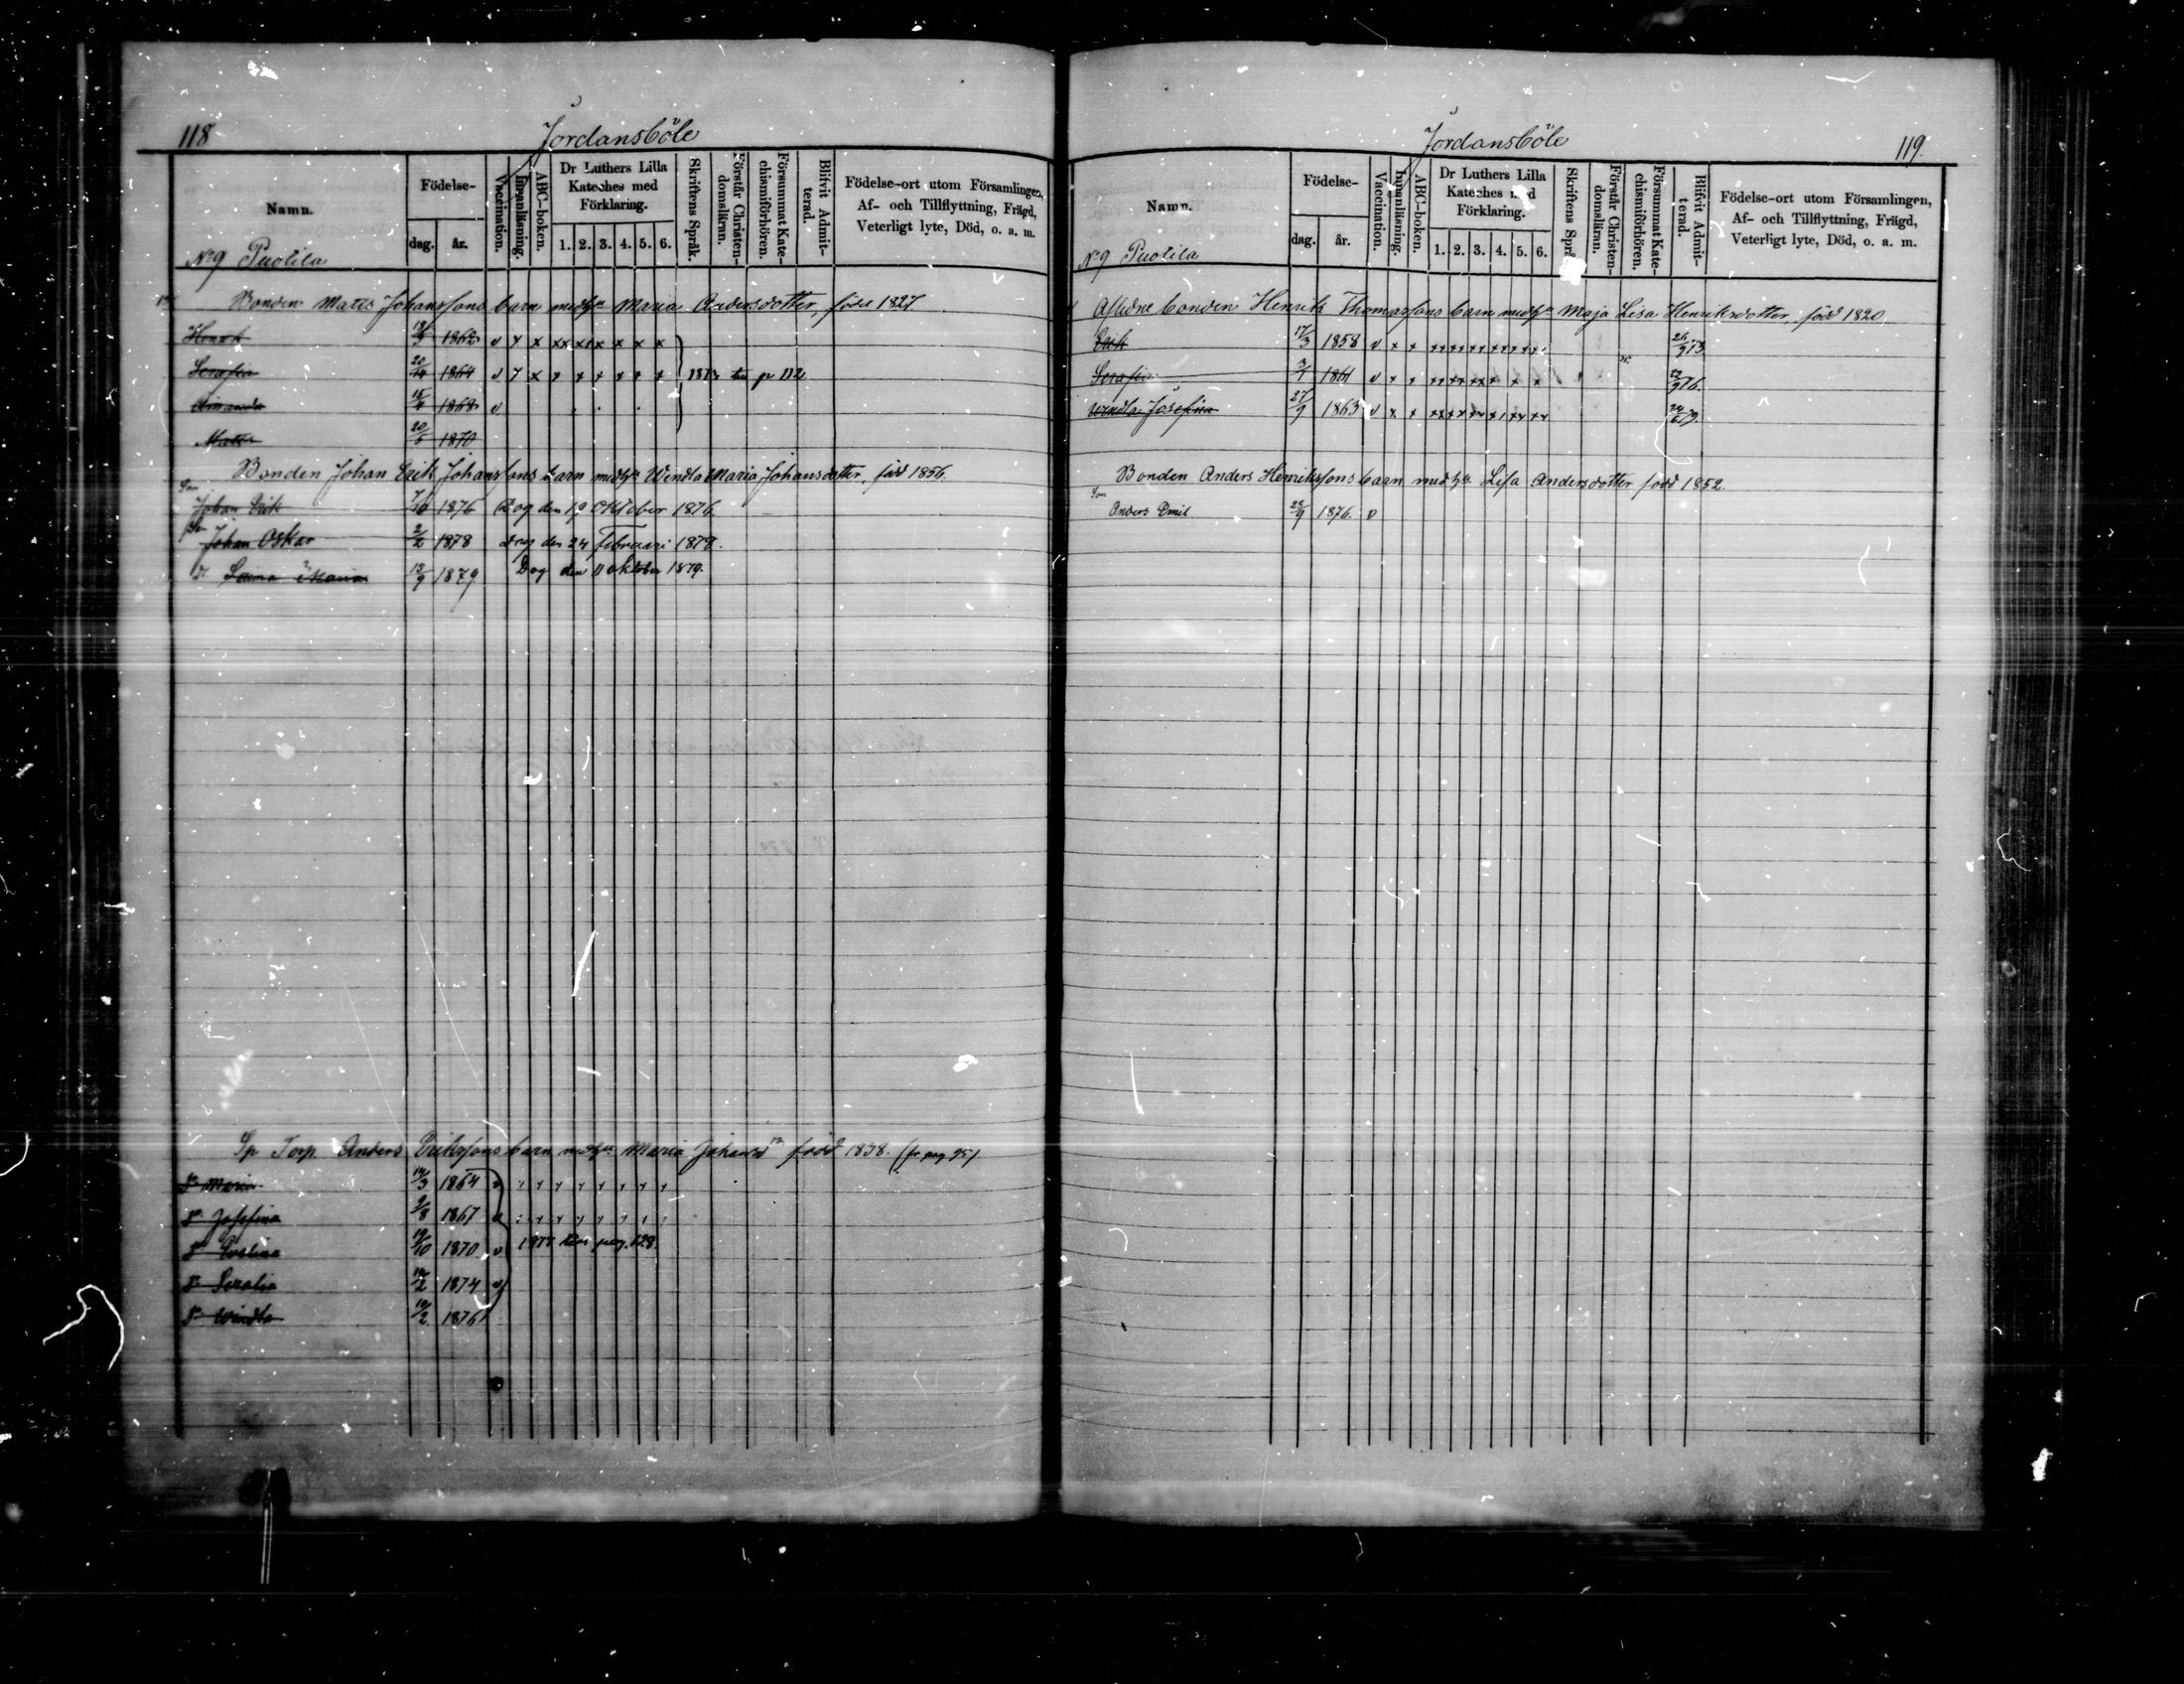 118
Jordansböle
Namn.
Födelse-
dag.
år.
Vaccination.
Innanläsning.
ABC-boken.
Dr Luthers Lilla
Kateches med
Förklaring.
1. 2. 3. 4. 5. 6.
Skriftens Språk.
Förstår Christen-
domsläran.
Försummat Kate-
chismiförhören.
Blifvit Admit-
terad.
Födelse-ort utom Församlingen,
Af- och Tillflyttning, Frägd,
Veterligt lyte, Död, o. a. m.
No 9 Puotila
Bonden Matts Johanssons barn med hu Maria Andersdotter, född 1827.
Henrik 1862 v x x xx xx x x x x
Serafia 20 1864 v x x x x x x x x 1873 p 112
Amanda 15/4 1868 v
Matts 20 1870
Bonden Johan Erik Johanssons barn med hu Wendla Maria Johansdotter, född 1856.
Son
Johan Erik 7/10 1876 Dog den 19 Oktober 1876.
Son Johan Oskar 2/2 1878 Dog den 24 Februari 1878.
Dr Maria 13/9 1879 Dog den 11 oktober 1879.
Sp Torp. Anders Erikssons barn med hu Maria Johansdr född 1838. (fr pag 95)
Dr Maria 14/3 1864 v
Dr Josefina 9/8 1867 v
Dr Evelina 19/10 1870 v pag. 128.
Dr Seralia 14/2 1874 v
Dr Wendla 10/2 1876
119.
Jordansböle
Namn.
Födelse-
dag.
år.
Vaccination.
Innanläsning.
ABC-boken.
Dr Luthers Lilla
Kateches med
Förklaring.
1. 2. 3. 4. 5. 6.
Skriftens Språ
Förstår Christen-
domsläran.
Försummat Kate-
chismiförhören.
Blifvit Admit-
terad.
Födelse-ort utom Församlingen,
Af- och Tillflyttning, Frägd,
Veterligt lyte, Död, o. a. m.
No 9 Puotila
Aflidne bonden Henrik Thomassons barn med hu Maja Lisa Henriksdotter, född 1820
Erik 17/3 1858 v x x xx xx xx xx xx xx 26/9 73
Serafia 3/1 1861 v x x xx xx xx x x x 12/9 76.
Wendla Josefina 27/9 1863 v x x xx xx xx xx xx xx 24/6 79.
Bonden Anders Henrikssons barn med hu Lisa Andersdotter född 1852.
Son
Anders Emil 28/9 1876. v